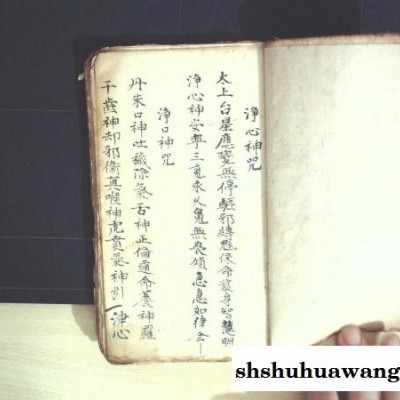 淨心神咒
太上台星應變無停驅邪縛魅保命護身智慧明
淨心神安寧三魂永久魄無喪傾急急如律令
淨口神咒
丹朱口神吐穢除氛舌神正倫通命養神羅
千齒神却邪衛真喉神虎賁氣神引津心
shshuhuawang